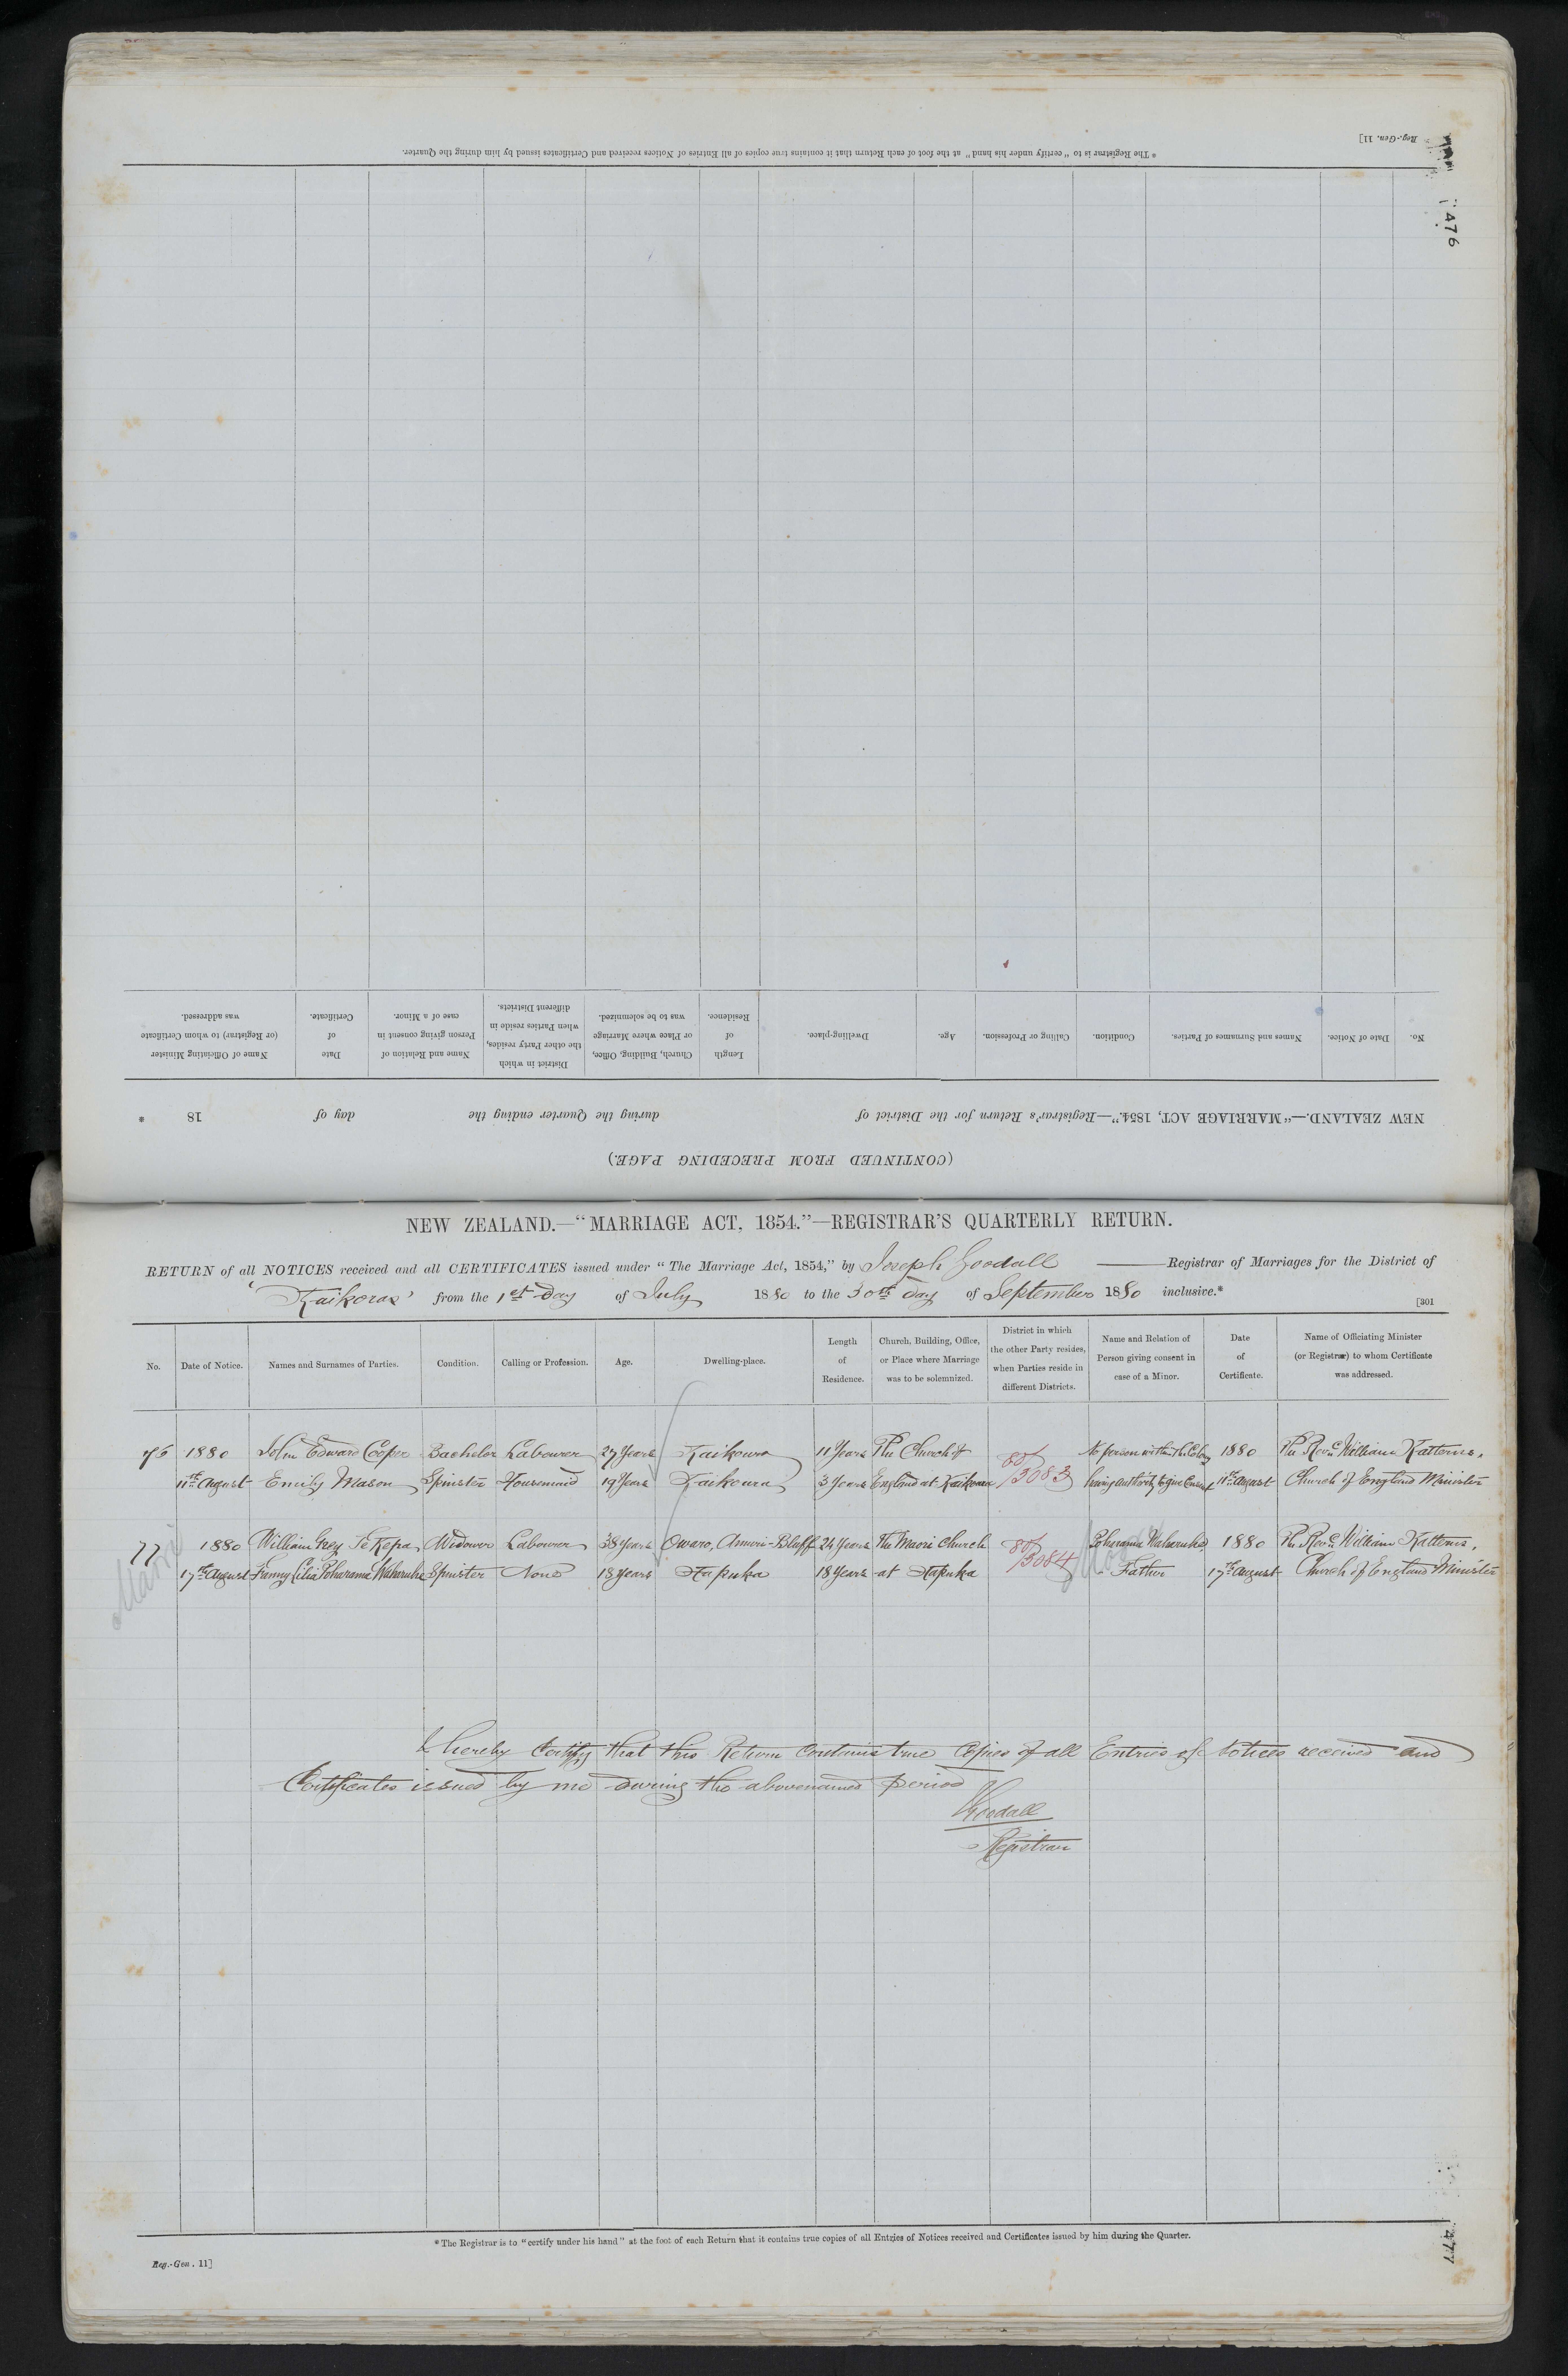 Reg.-Gen. 11]
476
* The Registrar is to "certify under his hand" at the foot of each Return that it contains true copies of all Entries of Notices received and Certificates issued by him during the Quarter.
(CONTINUED FROM PRECEDING PAGE.)
NEW ZEALAND.—"MARRIAGE ACT, 1854."—Registrar's Return for the District of during the Quarter ending the day of 18 *
No.
Date of Notice.
Names and Surnames of Parties.
Condition.
Calling or Profession.
Age.
Dwelling-place.
Length
of
Residence.
Church, Building, Office,
or Place where Marriage
was to be solemnized.
District in which
the other Party resides,
when Parties reside in
different Districts.
Name and Relation of
Person giving consent in
case of a Minor.
Date
of
Certificate.
Name of Officiating Minister
(or Registrar) to whom Certificate
was addressed.
NEW ZEALAND.—"MARRIAGE ACT, 1854."—REGISTRAR'S QUARTERLY RETURN.
RETURN of all NOTICES received and all CERTIFICATES issued under "The Marriage Act, 1854," by Joseph Goodall Registrar of Marriages for the District of
'Kaikoras' from the 1st day of July 1880 to the 30th day of September 1880 inclusive.*
[301
No.
Date of Notice.
Names and Surnames of Parties.
Condition.
Calling or Profession.
Age.
Dwelling-place.
Length
of
Residence.
Church, Building, Office,
or Place where Marriage
was to be solemnized.
District in which
the other Party resides,
when Parties reside in
different Districts.
Name and Relation of
Person giving consent in
case of a Minor.
Date
of
Certificate.
Name of Officiating Minister
(or Registrar) to whom Certificate
was addressed.
76 1880 John Edward Cooper Bachelor Labourer 27 Years Kaikoura 11 Years The Church of 80/3083 No person within the Colony 1880 The Revd. William Katterns,
11th August Emily Mason Spinster Housemaid 19 Years Kaikoura 3 Years England at Kaikoura having authority to give Consent 11th August Church of England Minister
77 1880 William Grey Te Kepa Widower Labourer 38 Years Owaro, Amuri-Bluff 24 Years The Maori Church 80/3084 Poharama Waharuhe 1880 The Revd. William Katterns,
17th August Fanny Cilia Poharama Waharuhe Spinster None 18 years Hapuka 18 Years at Hapuka Father 17th August Church of England Minister
Maori
I hereby Certify that this Return Contains true Copies of all Entries of Notices received and
Certificates issued by me during the abovenamed period
JGoodall
Registrar
* The Registrar is to "certify under his hand" at the foot of each Return that it contains true copies of all Entries of Notices received and Certificates issued by him during the Quarter.
Reg.-Gen. 11]
477